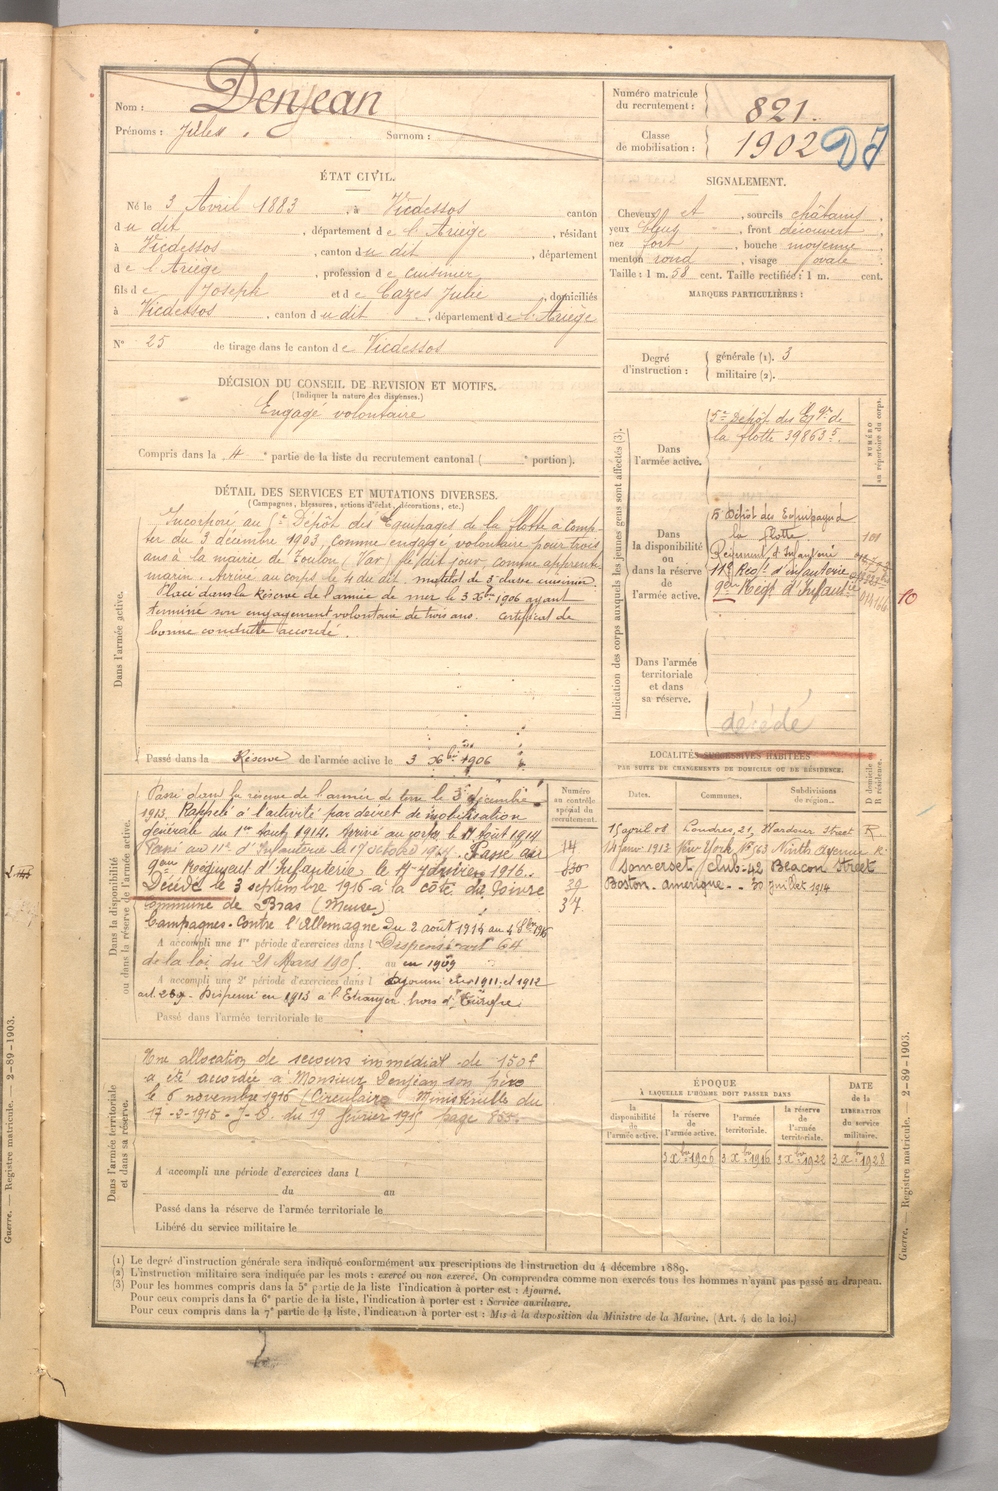 Nom : Denjean
Prénoms : Jules. Surnom :
Numéro matricule du recrutement : 821.
Classe de mobilisation : 1902
ÉTAT CIVIL.
Né le 3 Avril 1883, à Vicdessos canton
du dit, département de l'Ariège, résidant
à Vicdessos, canton du dit, département
de l'Ariège, profession de cuisinier
fils de Joseph et de Cazes Julie, domiciliés
à Vicdessos, canton du dit, département de l'Ariège
N° 25 de tirage dans le canton de Vicdessos
SIGNALEMENT.
Cheveux et, sourcils châtains,
yeux bleus, front découvert,
nez fort, bouche moyenne
menton rond, visage ovale
Taille : 1 m. 58 cent. Taille rectifiée : 1 m. cent.
MARQUES PARTICULIÈRES :
Degré d'instruction : générale (1). 3
militaire (2).
DÉCISION DU CONSEIL DE REVISION ET MOTIFS.
(Indiquer la nature des dispenses.)
Engagé volontaire
Compris dans la 4e partie de la liste du recrutement cantonal ( e portion).
DÉTAIL DES SERVICES ET MUTATIONS DIVERSES.
(Campagnes, blessures, actions d'éclat, décorations, etc.)
Dans l'armée active.
Incorporé au 5e Dépôt des Equipages de la flotte à comp-
ter du 3 décembre 1903, comme engagé volontaire pour trois
ans à la mairie de Toulon (Var) le dit jour, comme apprenti
marin. Arrivé au corps le 4 du dit. matelot de 3e classe cuisinier.
Placé dans la Réserve de l'armée de mer le 3 Xbre 1906 ayant
terminé son engagement volontaire de trois ans. Certificat de
bonne conduite accordé.
Passé dans la Réserve de l'armée active le 3 Xbre 1906
Indication des corps auxquels les jeunes gens sont affectés (3).
NUMÉRO au répertoire du corps.
Dans l'armée active.
5e Dépôt des Eqges de
la flotte 39863 5.
Dans la disponibilité ou dans la réserve de l'armée active.
5 Dépôt des Equipages de
la flotte. 101
Régiment d'Infanterie
11e Regt d'infanterie
9em Régt d'Infanterie
10
Dans l'armée territoriale et dans sa réserve.
décédé
Dans la disponibilité ou dans la réserve de l'armée active.
Passé dans la réserve de l'armée de terre le 3 décembre
1913. Rappelé à l'activité par décret de mobilisation
générale du 1er Août 1914. Arrivé au corps le 11 Août 1914
Passé au 11e d'Infanterie le 17 octobre 1914. Passé au
9em Régiment d'Infanterie le 17 Janvier 1916.
Décédé le 3 septembre 1916 à la côte du Poivre
commune de Bras (Meuse)
Campagnes. Contre l'Allemagne du 2 août 1914 au 4 7bre 1916
A accompli une 1re période d'exercices dans l Dispensé art 64
de la loi du 21 Mars 1905. au en 1909
A accompli une 2e période d'exercices dans l Ajourné en 1911 et 1912
art. 269. Dispensé en 1913 à l'Etranger hors d'Europe.
Passé dans l'armée territoriale le
Numéro au contrôle spécial du recrutement.
14
630
39
37
LOCALITÉS SUCCESSIVES HABITÉES
PAR SUITE DE CHANGEMENTS DE DOMICILE OU DE RÉSIDENCE.
Dates. Communes. Subdivisions de région. D domicile R résidence.
15 avril 08 Londres, 21, Wardour Street R.
14 janv 1913 New York No 563 Ninth Avenue R.
Somerset Club. 42 Beacon Street
Boston. Amérique. 30 juillet 1914
Dans l'armée territoriale et dans sa réserve.
Une allocation de secours immédiat de 150f
a été accordée à Monsieur Denjean son père
le 6 novembre 1916 (Circulaire Ministérielle du
17-2-1915- J.O. du 19 février 1915 page 855.
A accompli une période d'exercices dans l
du au
Passé dans la réserve de l'armée territoriale le
Libéré du service militaire le
ÉPOQUE
À LAQUELLE L'HOMME DOIT PASSER DANS
la disponibilité de l'armée active. la réserve de l'armée active. l'armée territoriale. la réserve de l'armée territoriale. DATE de la LIBÉRATION du service militaire.
3 Xbre 1906 3 Xbre 1916 3 Xbre 1922 3 Xbre 1928
(1) Le degré d'instruction générale sera indiqué conformément aux prescriptions de l'instruction du 4 décembre 1889.
(2) L'instruction militaire sera indiquée par les mots : exercé ou non exercé. On comprendra comme non exercés tous les hommes n'ayant pas passé au drapeau.
(3) Pour les hommes compris dans la 5e partie de la liste l'indication à porter est : Ajourné.
Pour ceux compris dans la 6e partie de la liste, l'indication à porter est : Service auxiliaire.
Pour ceux compris dans la 7e partie de la liste, l'indication à porter est : Mis à la disposition du Ministre de la Marine. (Art. 4 de la loi.)
Guerre. — Registre matricule. — 2-89-1903.
Guerre. — Registre matricule. — 2-89-1903.